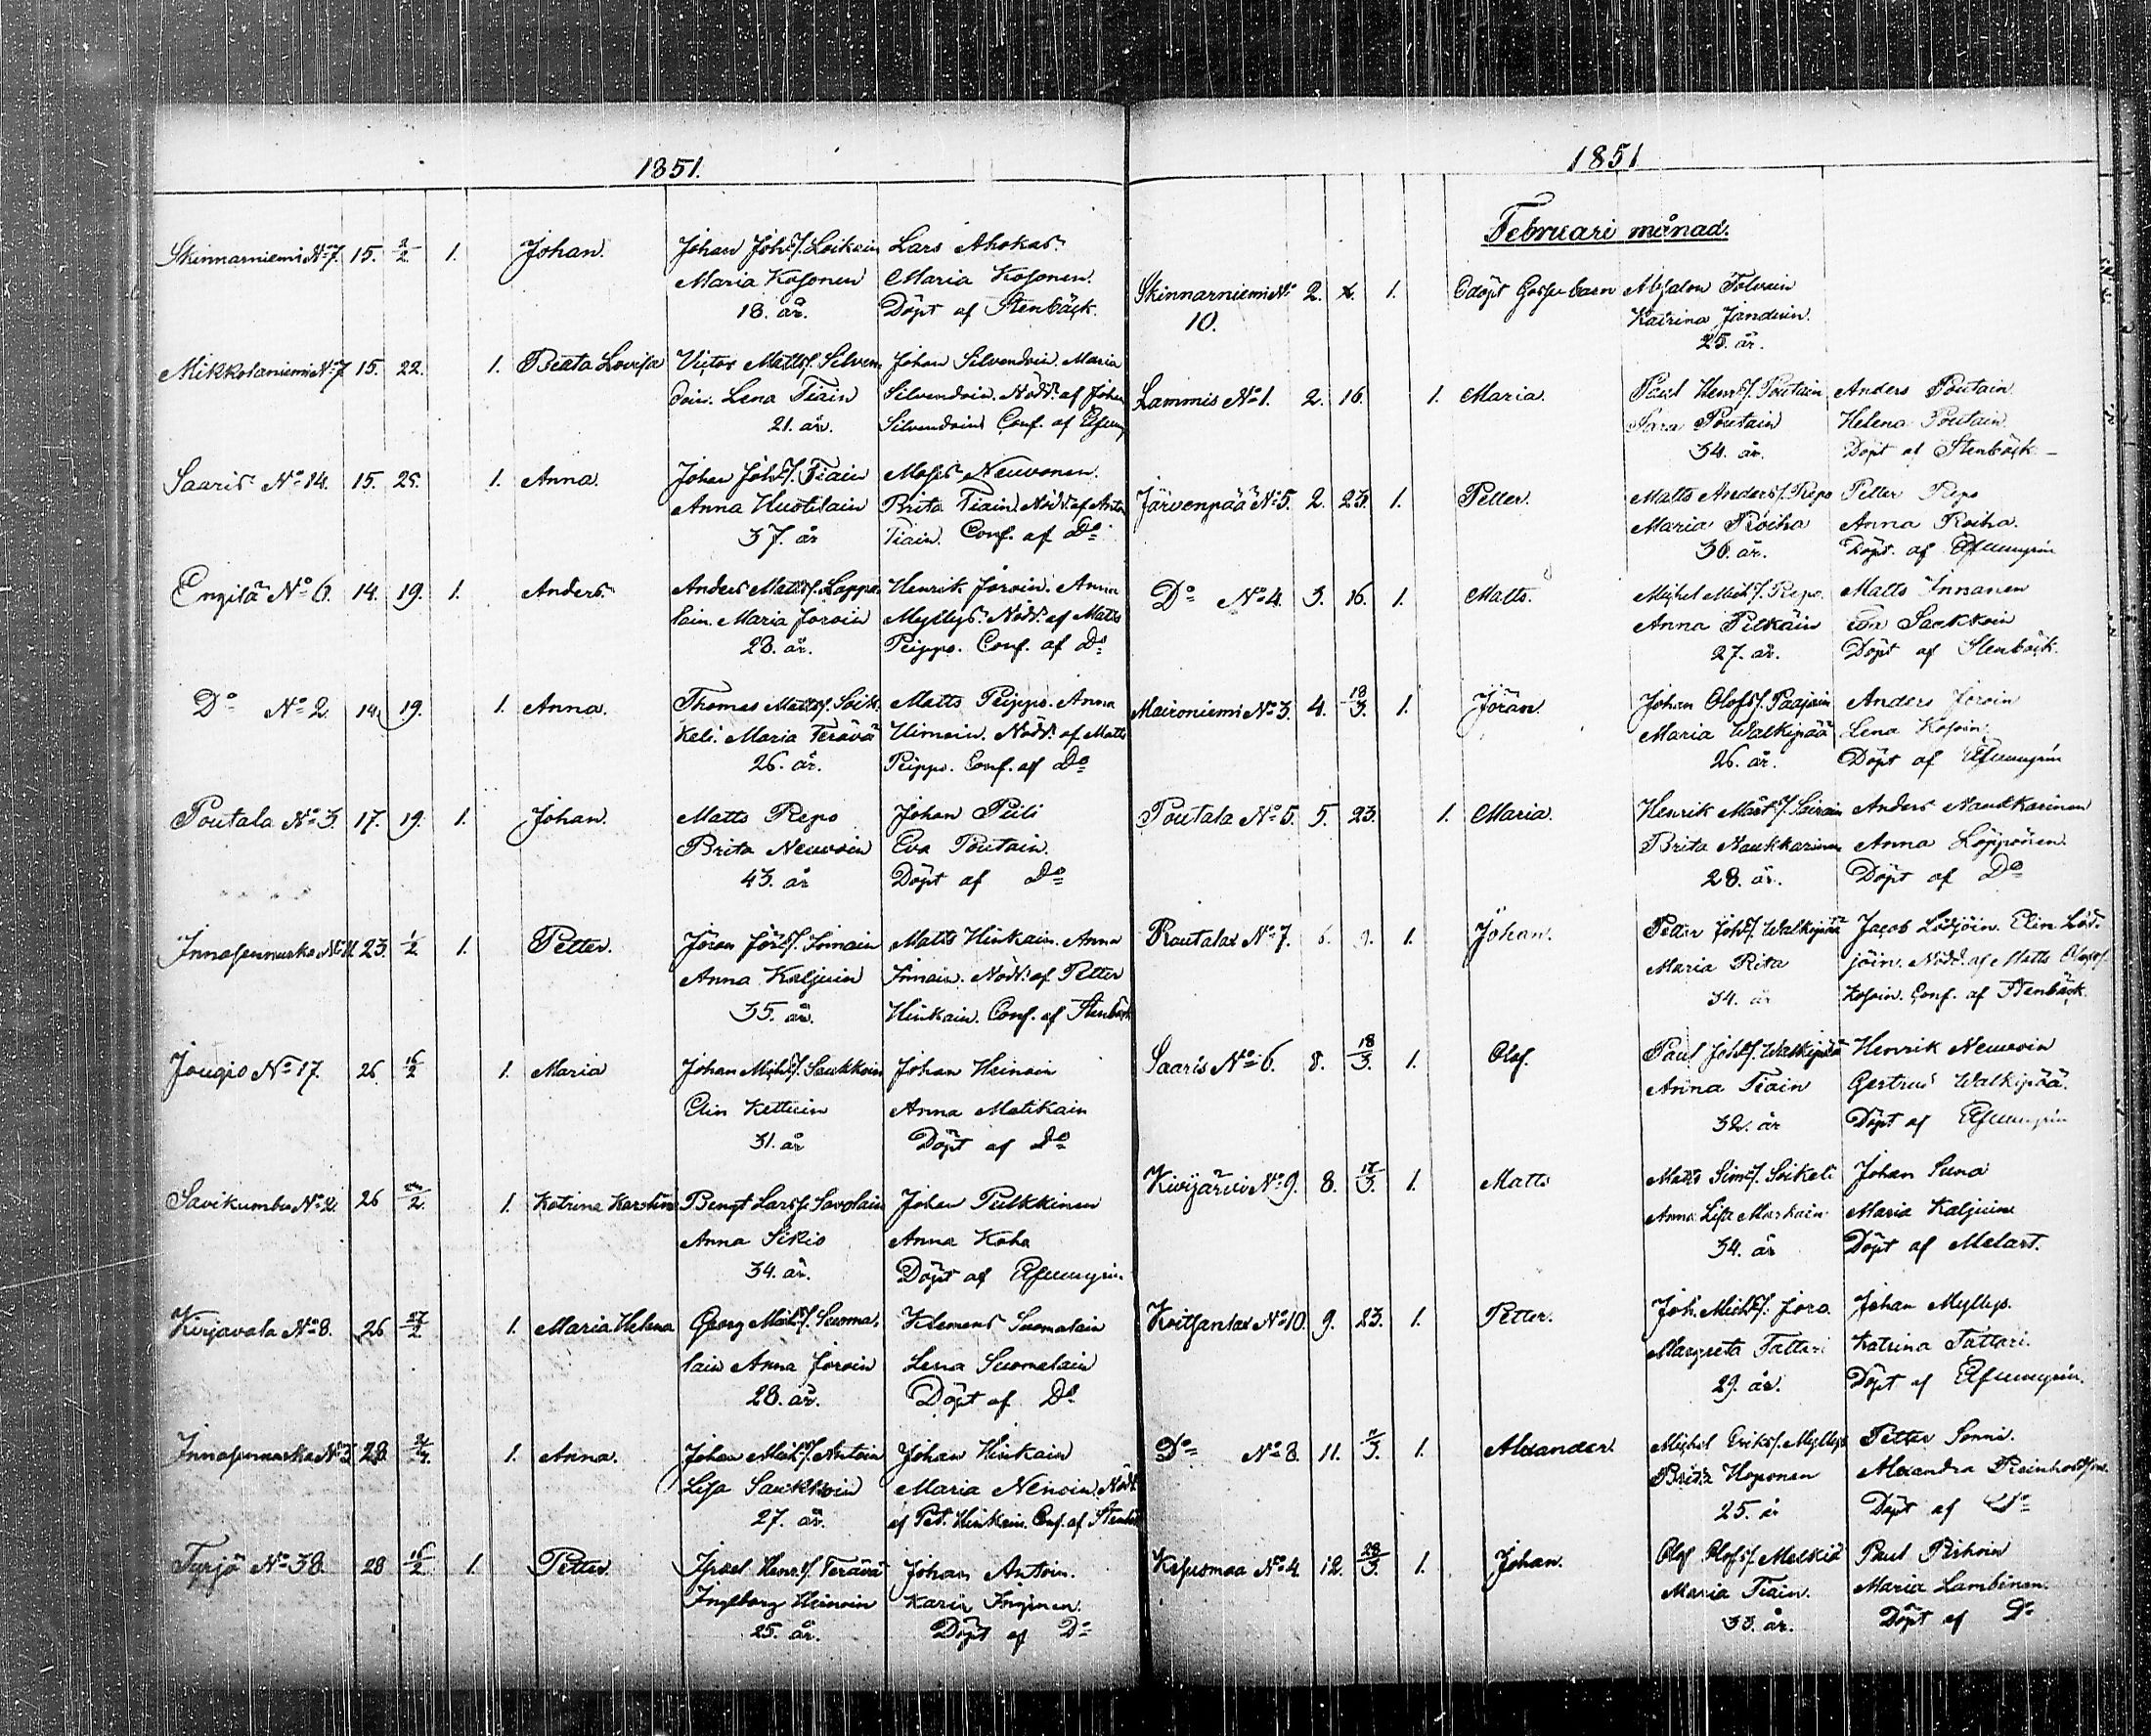 1851.
Skinnarniemi No 7. 15. 2/2 1. Johan. Johan Joh:s/. Loikain Lars Ahokas.
Maria Kosonen Maria Kosonen.
18. år. Döpt af Stenbäck.
Mikkolaniemi No 7 15. 22. 1. Beata Lovisa Victor Matts/. Silven Johan Silvendoin. Maria
doin. Lena Tiain Silvendoin. Nödd. af Johan
21. år. Silvendoin Conf. af
Saaris No 14. 15. 25. 1. Anna. Johan Joh:s/. Tiain Moses Neuvonen.
Anna Huotilain Brita Tiain. Nödd. af Anton
37. år Tiain. Conf. af Do
Engilä No 6. 14. 19. 1. Anders. Anders Matts/. Lappa Henrik Joroin. Anna
lain. Maria Joroin Myllys. Nödd. af Matts
28. år. Peippo. Conf. af Do
Do No 2. 14. 19. 1. Anna. Thomas Matts/. Soik Matts Peippo. Anna
keli. Maria Terävä Himoin. Nödd. af Matts
26. år. Peippo. Conf. af Do
Poutala No 3. 17. 19. 1. Johan. Matts Repo Johan Piili
Brita Neuvoin Eva Poutain.
43. år Döpt af Do
Innasenmaka No 11. 23. 1/2 1. Petter. Jöran Jör:s/. Immain Matts Hinkain. Anna
Anna Kaljuin Immain. Nödd. af Petter
35. år. Hinkain. Conf. af Stenbäck
Jougio No 17. 26. 16/2 1. Maria Johan Mich:s/. Saukkoin Johan Heinoin
Elin Kettuin Anna Matikain
31. år Döpt af Do
Savikumbu No 2. 26 /2. 1. Katrina Karolina Bengt Lars/. Savolain Johan Pulkkinen
Anna Sikio Anna Koho
34. år. Döpt af
Kirjavala No 8. 26 27/2 1. Maria Helena Georg Mich:s/. Suoma, Klemens Suomalain
lain Anna Joroin Lena Suomalain
28. år. Döpt af Do
Innasenmaka No 3 28. 1. Anna. Johan Mich:s/. Antoin Johan Hinkain
Lisa Saukkoin Maria Nenoin. Nödd
27. år. af Pet. Hinkain. Conf. af Stenbäck
Tyrjö No 38. 28 16/2 1. Petter. Israel Henr:s/. Terävä Johan Antoin.
Ingeborg Heinoin Karin
25. år. Döpt af Do
1851
Februari månad.
Skinnarniemi No 2. 1. Odöpt Gossebarn Absalon Tolvain
10. Katrina Janduin.
25. år.
Lammis No 1. 2. 16. 1. Maria. Paul Henr:s/. Poutain Anders Poutain
Sara Poutain Helena Poutain.
34. år. Döpt af Stenbäck.
Järvenpää No 5. 2. 23. 1. Petter. Matts Anders/. Repo Petter Repo
Maria Roiha Anna Roiha.
36. år. Döpt. af
Do No 4. 3. 16. 1. Matts. Michel Mich:s/. Repo. Matts Innanen
Anna Pitkäin Eva Saukkoin
27. år. Döpt af Stenbäck.
Maironiemi No 3. 4. 18/3. 1. Jöran. Johan Olofs/. Paajain Anders Joroin
Maria Walkipää Lena Kosoin.
26. år. Döpt af
Poutala No 5. 5. 23. 1. Maria. Henrik Mårt:s/. Loirain Anders Naukkarinen
Brita Naukkarinen Anna Löppönen.
28. år. Döpt af Do
Rautalax No 7. 6. 9. 1. Johan. Petter Joh:s/. Walkipää Jacob Lödjöin. Elin Löd.
Maria Rita jöin. Nödd. af Matts Olofs/.
34. år Kosoin. Conf. af Stenbäck.
Saaris No 6. 8. 18/3. 1. Olof. Paul Joh:s/. Walkipää Henrik Neuvoin
Anna Tiain Gertrud Walkipää.
32. år Döpt af
Kivijärvi No 9. 8. 17/3. 1. Matts Matts Sim:s/. Soikeli Johan Suna
Anna Lisa Maskain Maria Kaljuin
34. år Döpt af Melart.
Koitsanlax No 10. 9. 23. 1. Petter. Joh. Mich:s/. Joro Johan Myllys.
Margreta Tattari Katrina Tattari.
29. år. Döpt af
Do No 8. 11. /3. 1. Alexander. Michel Eriks/. Myllys Petter Sonni.
Brita Hoponen Alexandra
25. år Döpt af Do
Kesusmaa No 4 12. 28/3. 1. Johan. Olof Olofs/. Malkiä Paul Pishoin
Maria Tiain. Maria Lambinen.
33. år. Döpt af Do